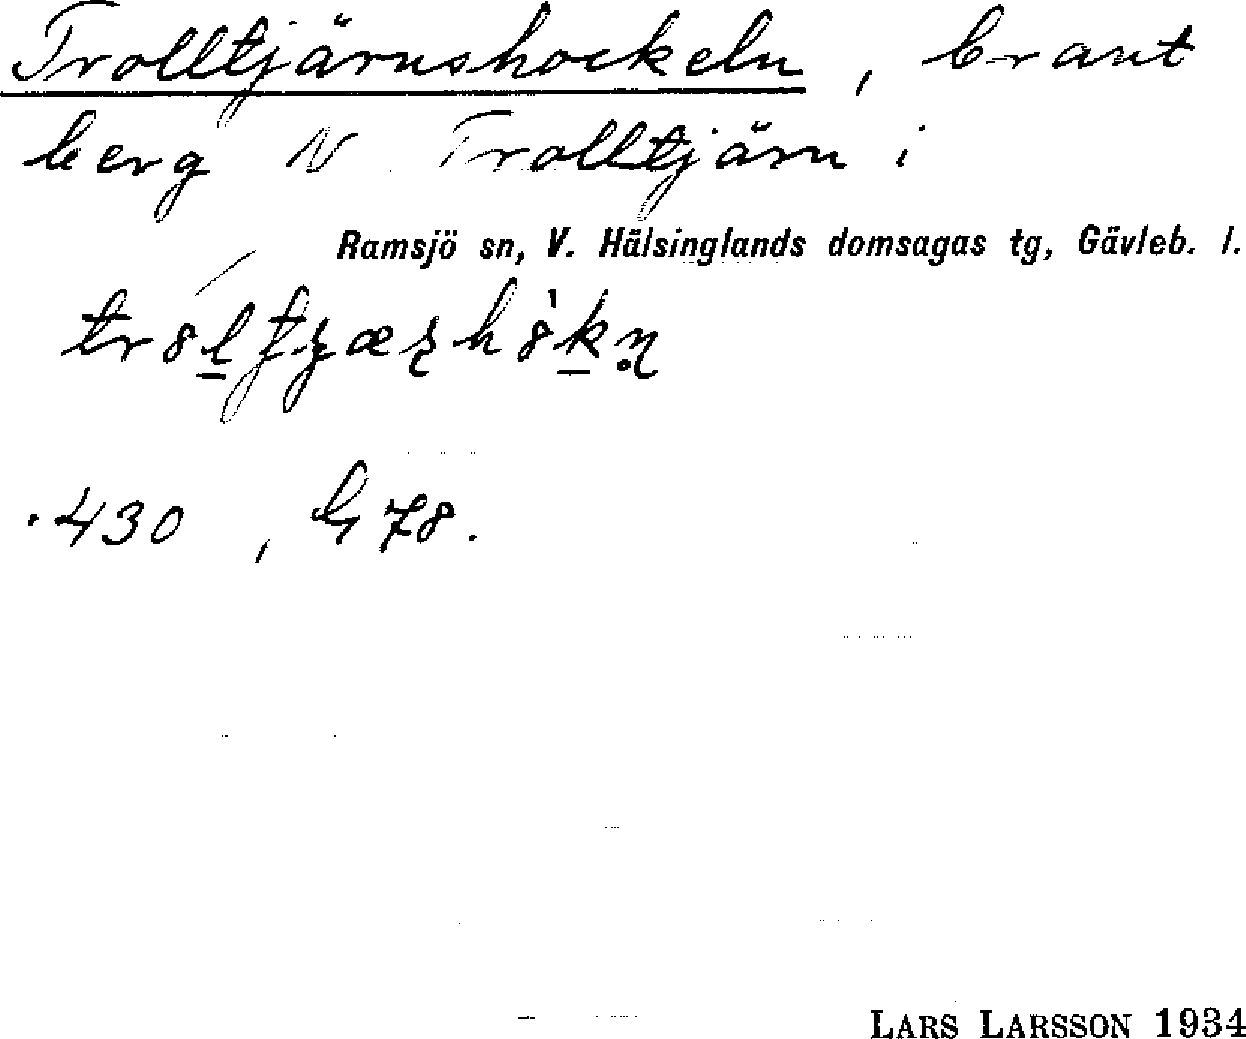 Trolltjärnshockeln, brant
berg N Trolltjärn i
Ramsjö sn, V. Hälsinglands domsagas tg, Gävleb. l.
430, G 78.
LARS LARSSON 1934